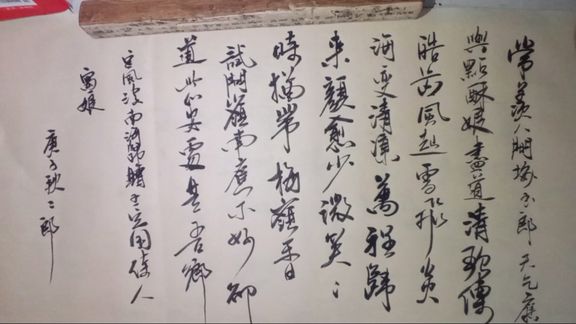 常羡人間琢玉郎天乞應
與點酥娘盡道清歌傳
皓齒風起雪飛炎
海變清涼萬裡歸
來顏愈少微笑〻
時猶帶梅嶺香
試問嶺南應不好却
道此心安處是吾鄉
定風波南海歸贈王定國侍人
寓娘
庚子秋二郎